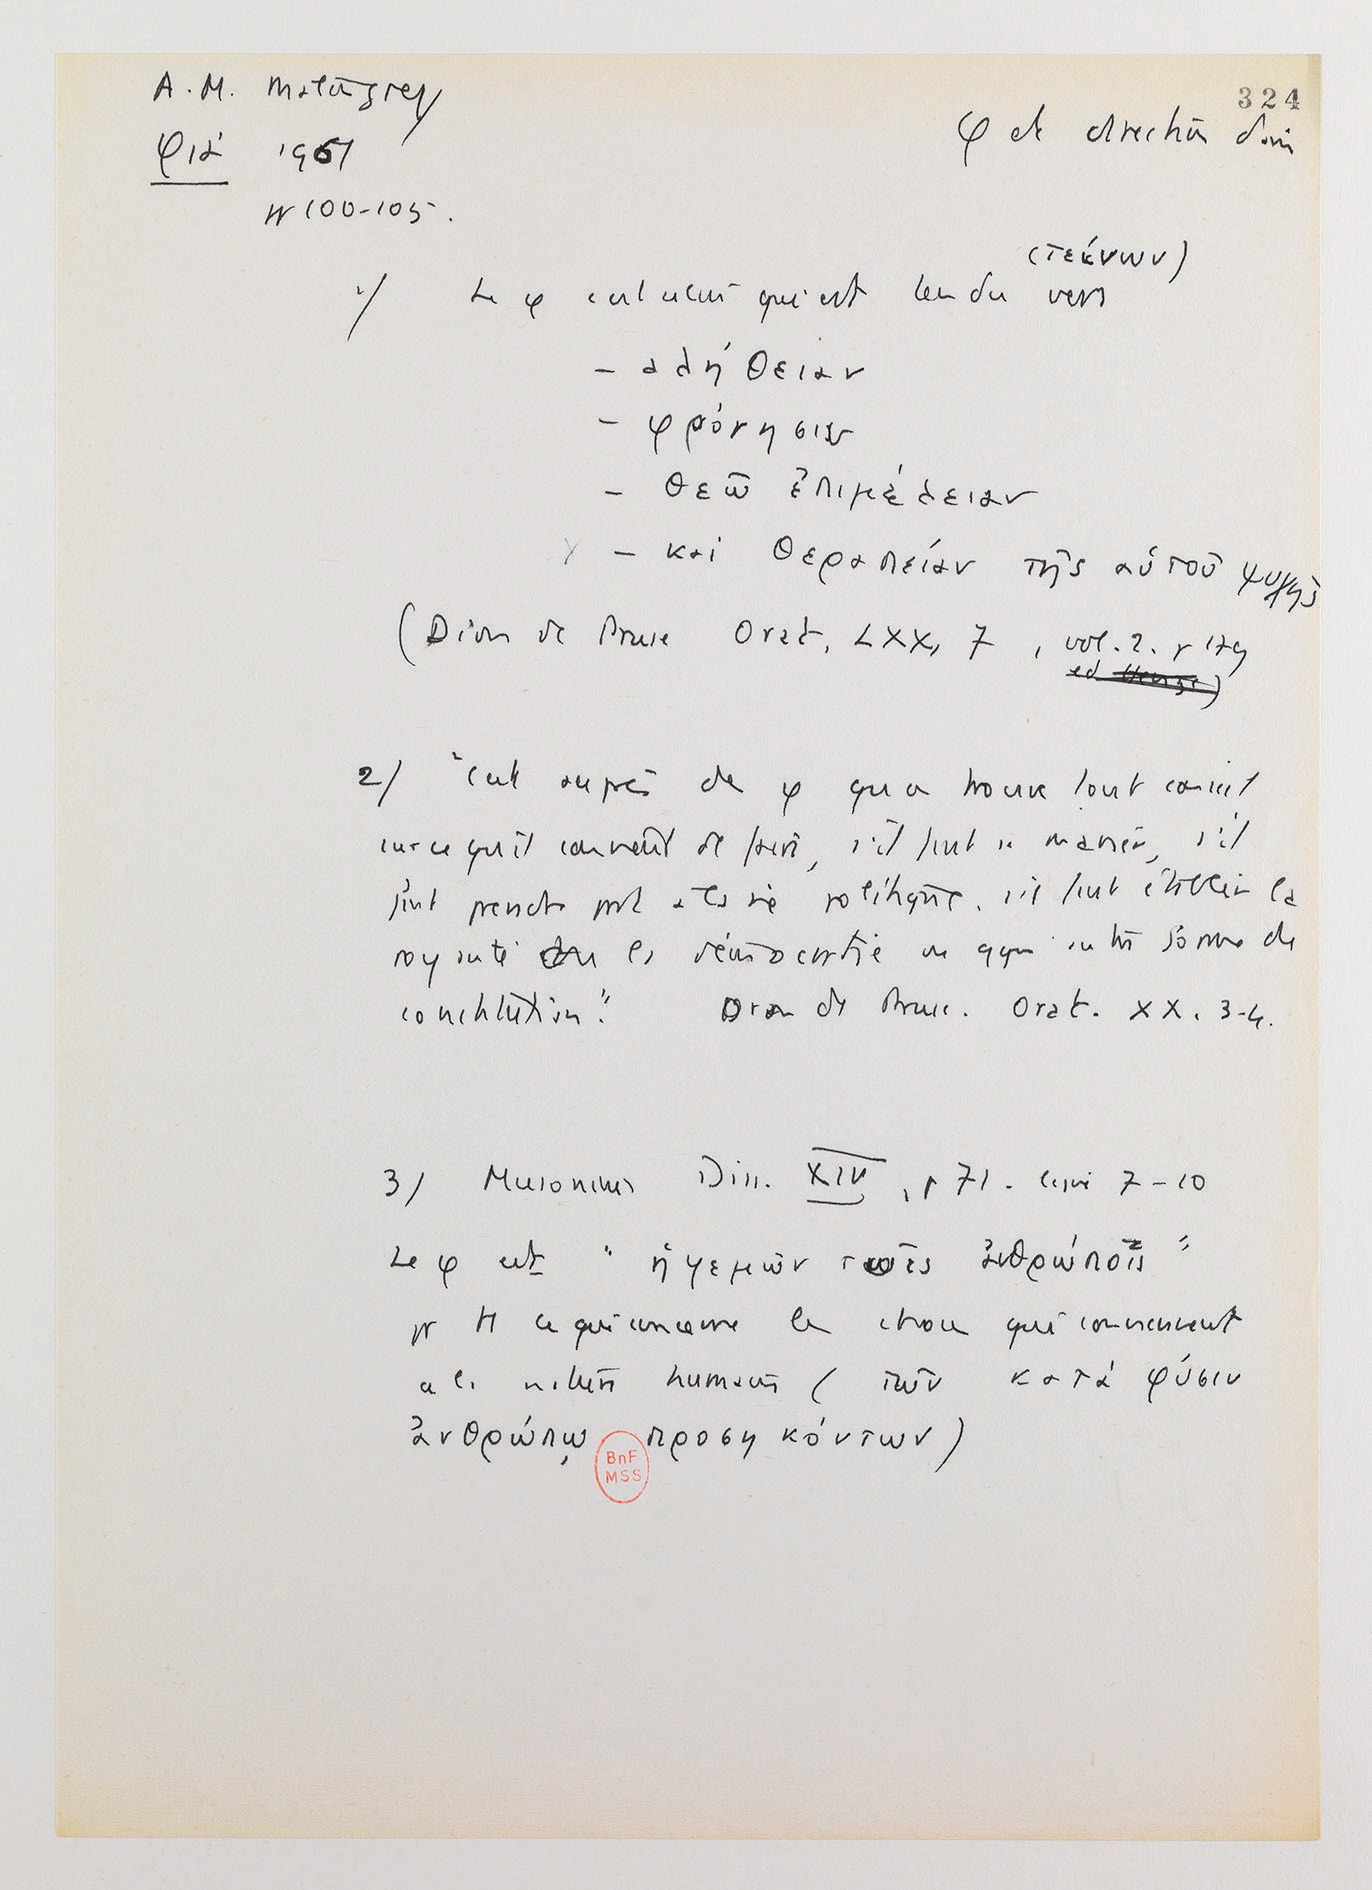 324
A. M. Malingrey
φια 1961
pp 100-105.
φ et direction d'âm
(τεκνων)
1/ Le φ est celui qui est tendu vers
– αλήθειαν
– φρόνησιν
– θεῶ ἐπιμέλειαν
– και θεραπείαν τῆς αὑτοῦ ψυχῆς
(Dion de Pruse Orat. LXX, 7, vol. 2. p 179
ed )
2/ "C'est auprès de φ qu'on trouve tout conseil
sur ce qu'il convient de faire, s'il faut se marier, s'il
faut prendre part à la vie politique, s'il faut établir la
royauté ou la démocratie ou qqu autre forme de
constitution". Dion de Pruse. Orat. XX. 3-4.
3/ Musonius Diss. XIV, p 71. ligne 7-10
Le φ est "ἡγεμὼν τοῖς ἀνθρώποις"
pr tt ce qui concerne les choses qui conviennent
a la nature humaine ( τῶν κατὰ φύσιν
ἀνθρώπῳ προσηκόντων)
BnF
MSS